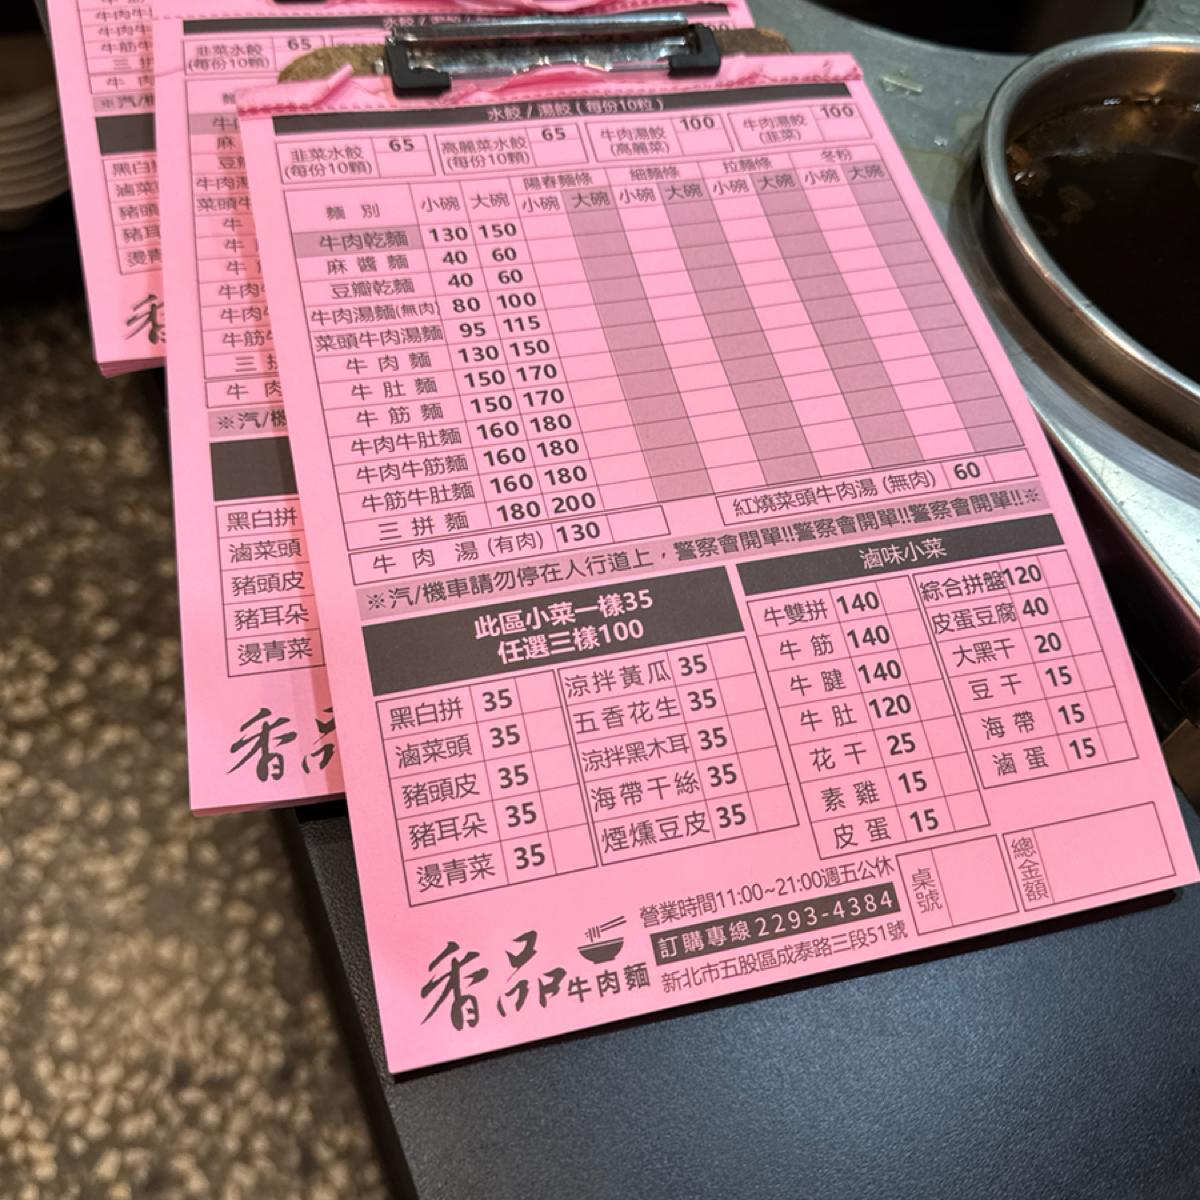 水餃 / 湯餃 ( 每份10粒 )
韭菜水餃 (每份10顆) 65 高麗菜水餃 (每份10顆) 65 牛肉湯餃 (高麗菜) 100 牛肉湯餃 (韭菜) 100
陽春麵條 細麵條 拉麵條 冬粉
麵 別 小碗 大碗 小碗 大碗 小碗 大碗 小碗 大碗 小碗 大碗
牛肉乾麵 130 150
麻 醬 麵 40 60
豆瓣乾麵 40 60
牛肉湯麵(無肉) 80 100
菜頭牛肉湯麵 95 115
牛 肉 麵 130 150
牛 肚 麵 150 170
牛 筋 麵 150 170
牛肉牛肚麵 160 180
牛肉牛筋麵 160 180
牛筋牛肚麵 160 180
三 拼 麵 180 200
牛 肉 湯 (有肉) 130
紅燒菜頭牛肉湯 (無肉) 60
※汽/機車請勿停在人行道上，警察會開單!!警察會開單!!警察會開單!!※
此區小菜一樣35
任選三樣100
黑白拼 35 涼拌黃瓜 35
滷菜頭 35 五香花生 35
豬頭皮 35 涼拌黑木耳 35
豬耳朵 35 海帶干絲 35
燙青菜 35 煙燻豆皮 35
滷味小菜
牛雙拼 140 綜合拼盤 120
牛 筋 140 皮蛋豆腐 40
牛 腱 140 大黑干 20
牛 肚 120 豆 干 15
花 干 25 海 帶 15
素 雞 15 滷 蛋 15
皮 蛋 15
桌號
總金額
香品牛肉麵
營業時間11:00~21:00週五公休
訂購專線2293-4384
新北市五股區成泰路三段51號
韭菜水餃 (每份10顆) 65
※汽/機
黑白拼
滷菜頭
豬頭皮
豬耳朵
燙青菜
香品